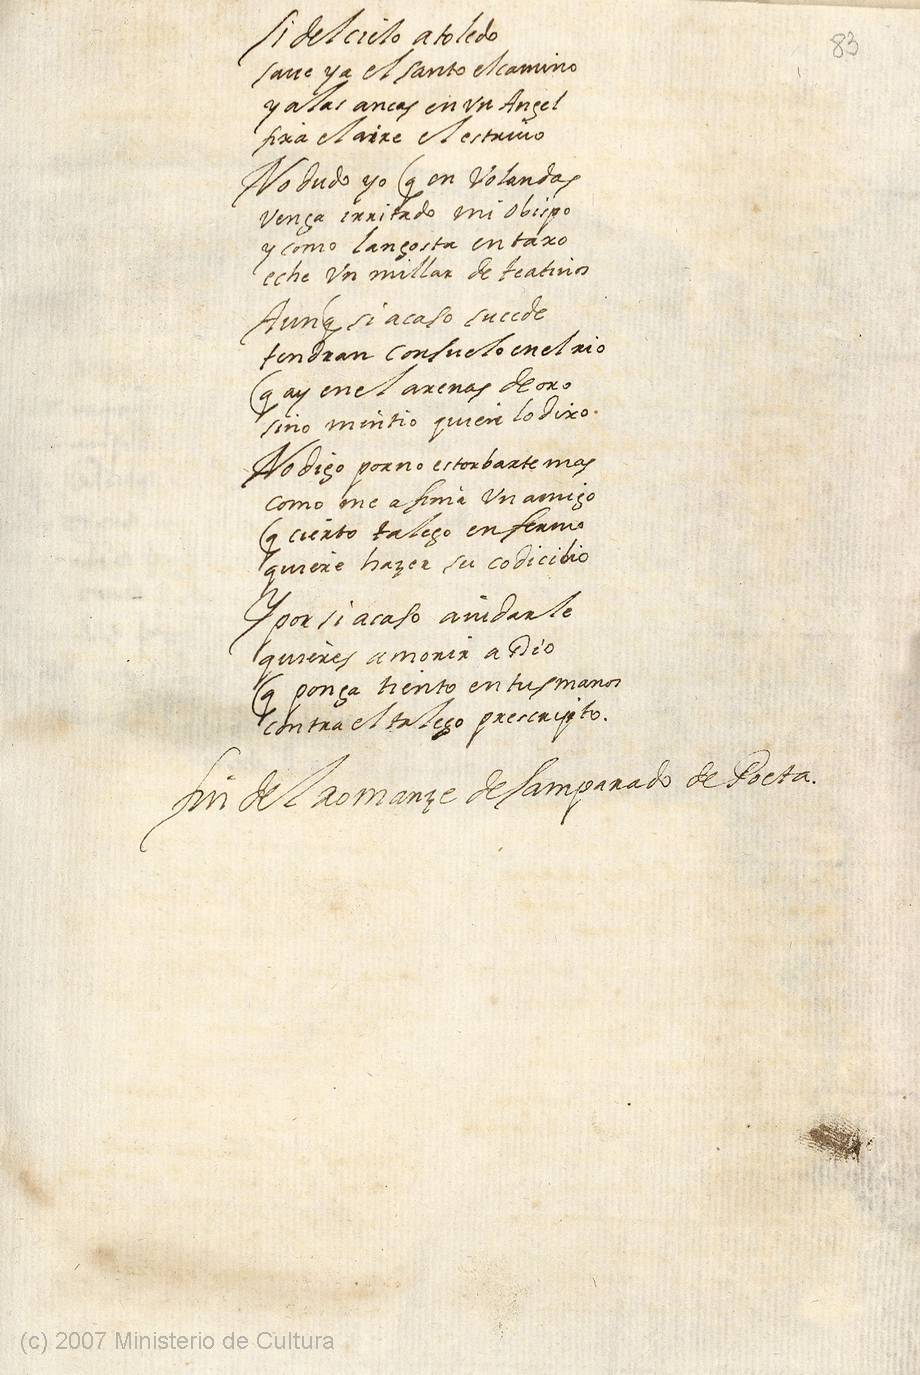 83
si del cielo a toledo
saue ya el santo el camino
y a las ancas en un Angel
sira el aire el estriuo
No dudo yo q en Volandas
venga irritado mi obispo
y como langosta en taxo
eche Vn millar de teatinos
Aunq si acaso sucede
tendran consuelo en el rio
q ay en el arenas de oro
sino mintio quien lo dixo.
No digo por no estorbarte mas
como me afirma Vn amigo
q cierto talego enfermo
quiere hazer su codicilio
Y por si acaso aiudarle
quieres a morir a Dio
q ponga tiento en tus manos
contra el talego prescripto.
fin del romanze desamparado de Poeta.
(c) 2007 Ministerio de Cultura